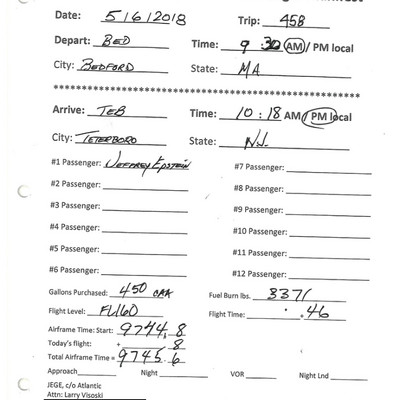 Date: 5/6/2018 Trip: 458
Depart: BED Time: 9:30 AM / PM local
City: BEDFORD State: MA
****************************************************
Arrive: TEB Time: 10:18 AM / PM local
City: TETERBORO State: NJ
#1 Passenger: JEFFREY EPSTEIN #7 Passenger:
#2 Passenger: #8 Passenger:
#3 Passenger: #9 Passenger:
#4 Passenger: #10 Passenger:
#5 Passenger: #11 Passenger:
#6 Passenger: #12 Passenger:
Gallons Purchased: 450 Fuel Burn lbs. 3371
Flight Level: FL160 Flight Time: .46
Airframe Time: Start: 9744.8
Today's flight: + .8
Total Airframe Time = 9745.6
Approach Night VOR Night Lnd
JEGE, c/o Atlantic
Attn: Larry Visoski